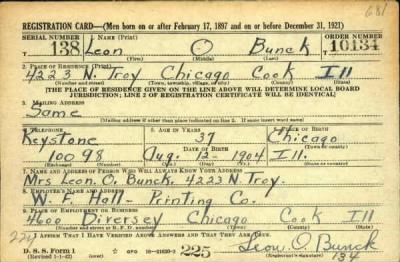 681
REGISTRATION CARD—(Men born on or after February 17, 1897 and on or before December 31, 1921)
SERIAL NUMBER 1. NAME (Print) ORDER NUMBER
138 Leon O Bunck 10134
(First) (Middle) (Last)
2. PLACE OF RESIDENCE (Print)
4223 N. Troy Chicago Cook Ill
(Number and street) (Town, township, village, or city) (County) (State)
[THE PLACE OF RESIDENCE GIVEN ON THE LINE ABOVE WILL DETERMINE LOCAL BOARD
JURISDICTION; LINE 2 OF REGISTRATION CERTIFICATE WILL BE IDENTICAL]
3. MAILING ADDRESS
Same
[Mailing address if other than place indicated on line 2. If same insert word same]
4. TELEPHONE 5. AGE IN YEARS 6. PLACE OF BIRTH
Keystone 37 Chicago
DATE OF BIRTH
10098 Aug. 12 - 1904 Ill.
(Exchange) (Number) (Mo.) (Day) (Yr.) (State or country)
7. NAME AND ADDRESS OF PERSON WHO WILL ALWAYS KNOW YOUR ADDRESS
Mrs Leon. O. Bunck. 4223 N Troy.
8. EMPLOYER'S NAME AND ADDRESS
W. F. Hall- Printing Co.
9. PLACE OF EMPLOYMENT OR BUSINESS
4600 Diversey Chicago Cook Ill
(Number and street or R. F. D. number) (Town) (County) (State)
I AFFIRM THAT I HAVE VERIFIED ABOVE ANSWERS AND THAT THEY ARE TRUE.
D. S. S. Form 1 GPO 16—21630-2 225 Leon O. Bunck
(Revised 1-1-42) (over) (Registrant's signature)
134